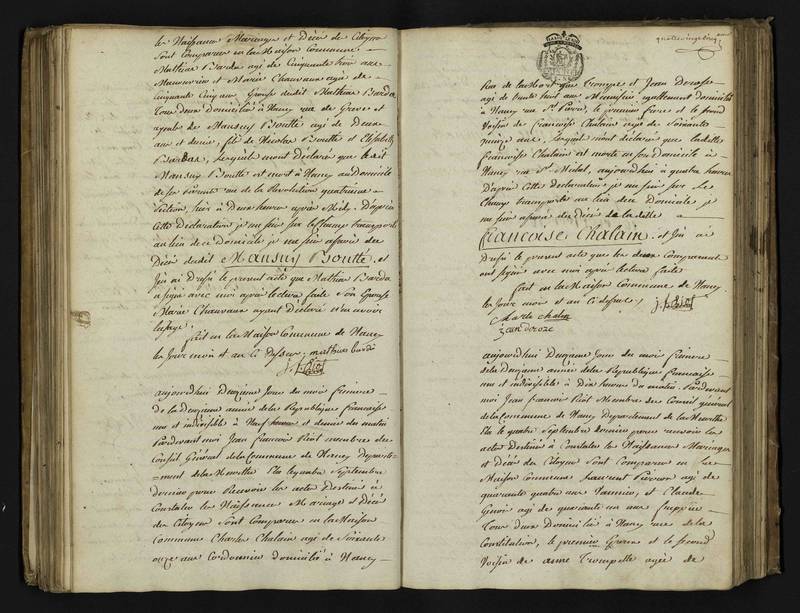 les Naissance Mariage et Décès de Citoyens
sont comparus en la Maison Commune
Mathieu Barda agé de Cinquante trois ans
Manœuvrier et Marie Chauvaux agée de
Cinquante Cinq ans Epouse dudit Mathieu Barda
Tous deux Domiciliés à Nancy rue de Greve et
ayeuls de Mansuy Boutté agé de Deux
ans et demie, fils de Nicolas Boutté et Elisabeth
Bardas, lesquels mont Déclaré que ledit
Mansuy Boutté est mort à Nancy au Domicile
de ses Parents rue de la Révolution quatrieme
Section, hier à Deux heures après Midy. D'après
Cette Déclaration je me suis sur le Champ transporté
au lieu de ce Domicile je me suis assuré du
Décès dudit Mansuy Boutté. et
J'en ai Dressé le présent acte que Mathieu Barda
a signé avec moi après lecture faite son Epouse
Marie Chauvaux ayant Déclaré n'en avoir
l'usage.
fait en la Maison Commune de Nancy
les Jours mois et an Ci dessus; mathieu bardà
aujourdhui Deuxieme Jour du mois frimere
de la Deuxieme année de la République française
une et indivisible à Neuf heures et demie du matin
Pardevant moi Jean François Piot membre du
Conseil Général de la Commune de Nancy Departe-
=ment de la Meurthe Elu le quatre Septembre
Dernier pour Recevoir les actes Destinés à
Constater les Naissance Mariage et Décès
des Citoyens Sont Comparus en la Maison
Commune Charles Chalain agé de Soixante
onze ans Cordonnier domicilié à Nancy
Rue de la et Jean Derosse
agé de trente huit ans Menuisier egallement domicilié
à Nancy rue St Pierre, le premier frere et le second
Voisin de Françoise Chalain agée de Soixante
quinze ans, lesquels mont déclarés que ladite
françoise Chalain est morte en son Domicile à
Nancy rue St Michel, aujourdhui à quatre heures
D'après Cette Déclaration je me suis sur le
Champ transporté au lieu du Domicile je
me suis assuré du Décès de ladite
françoise Chalain. et J'en ai
Dressé le présent acte que les deux Comparants
ont signé avec moi après lecture faite
fait en la Maison Commune de Nancy
les Jours mois et an Ci dessus;
Charle chalin
jean deroze
aujourdhui Deuxieme Jour du mois frimere
de la Deuxieme année de la République française
une et indivisible à Dix heures du matin Pardevant
moi Jean François Piot Membre du Conseil général
de la Commune de Nancy Departement de la Meurthe
Elu le quatre Septembre Dernier pour recevoir les
actes Destinés à Constater les Naissance Mariage
et Décès des Citoyens Sont Comparus en la
Maison Commune Laurent Pierson agé de
quarante quatre ans Vannier, et Claude
agé de quarante un ans
Tous deux Domiciliés à Nancy rue de la
Constitution, le premier Epoux et le second
Voisin de anne Trompette agée de